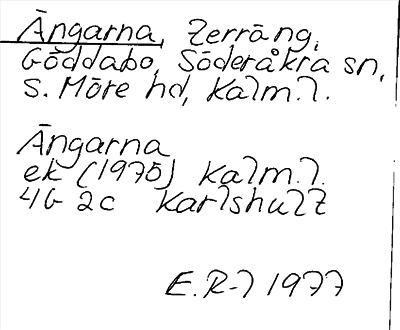 Ängarna, Terräng,
Göddabo, Söderåkra sn,
S. Möre hd, Kalm.l.
Ängarna
ek (1975) Kalm.l.
4G 2c Karlshult
E.R-l 1977